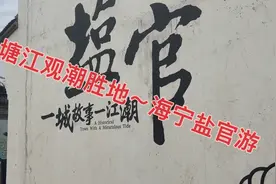 盐官
塘江观潮胜地～海宁盐官游
一城故事一江潮
A Historical
Town With A Miraculous Tide